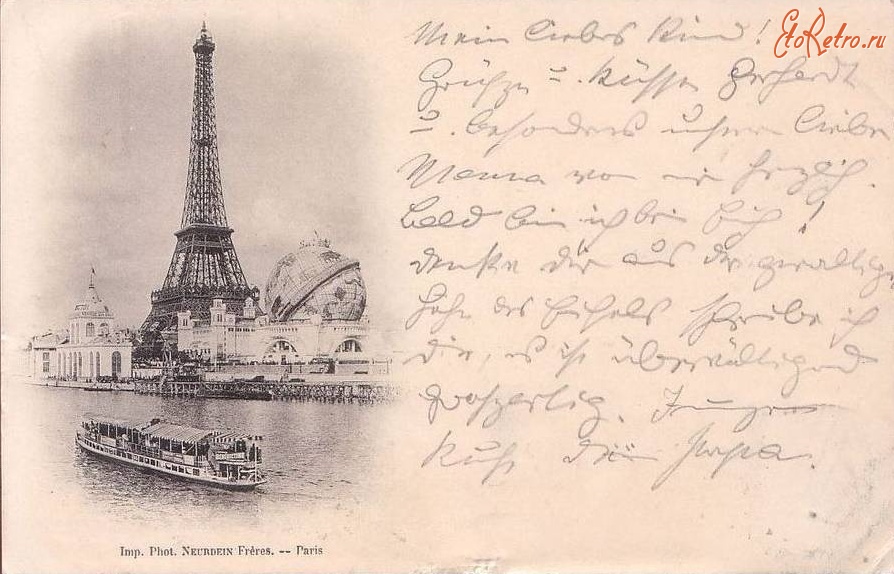 EtoRetro.ru
Mein liebes Kind!
Grüße u. küsse Gerhardt
u. besonders unsere liebe
Mama von mir herzlich.
Bald bin ich bei Euch!
denke Dir aus der gewaltigen
Höhe des Eifels schreibe ich
Dir, es ist überwältigend
großartig.
Kuß Dein Papa.
Imp. Phot. NEURDEIN Frères. -- Paris